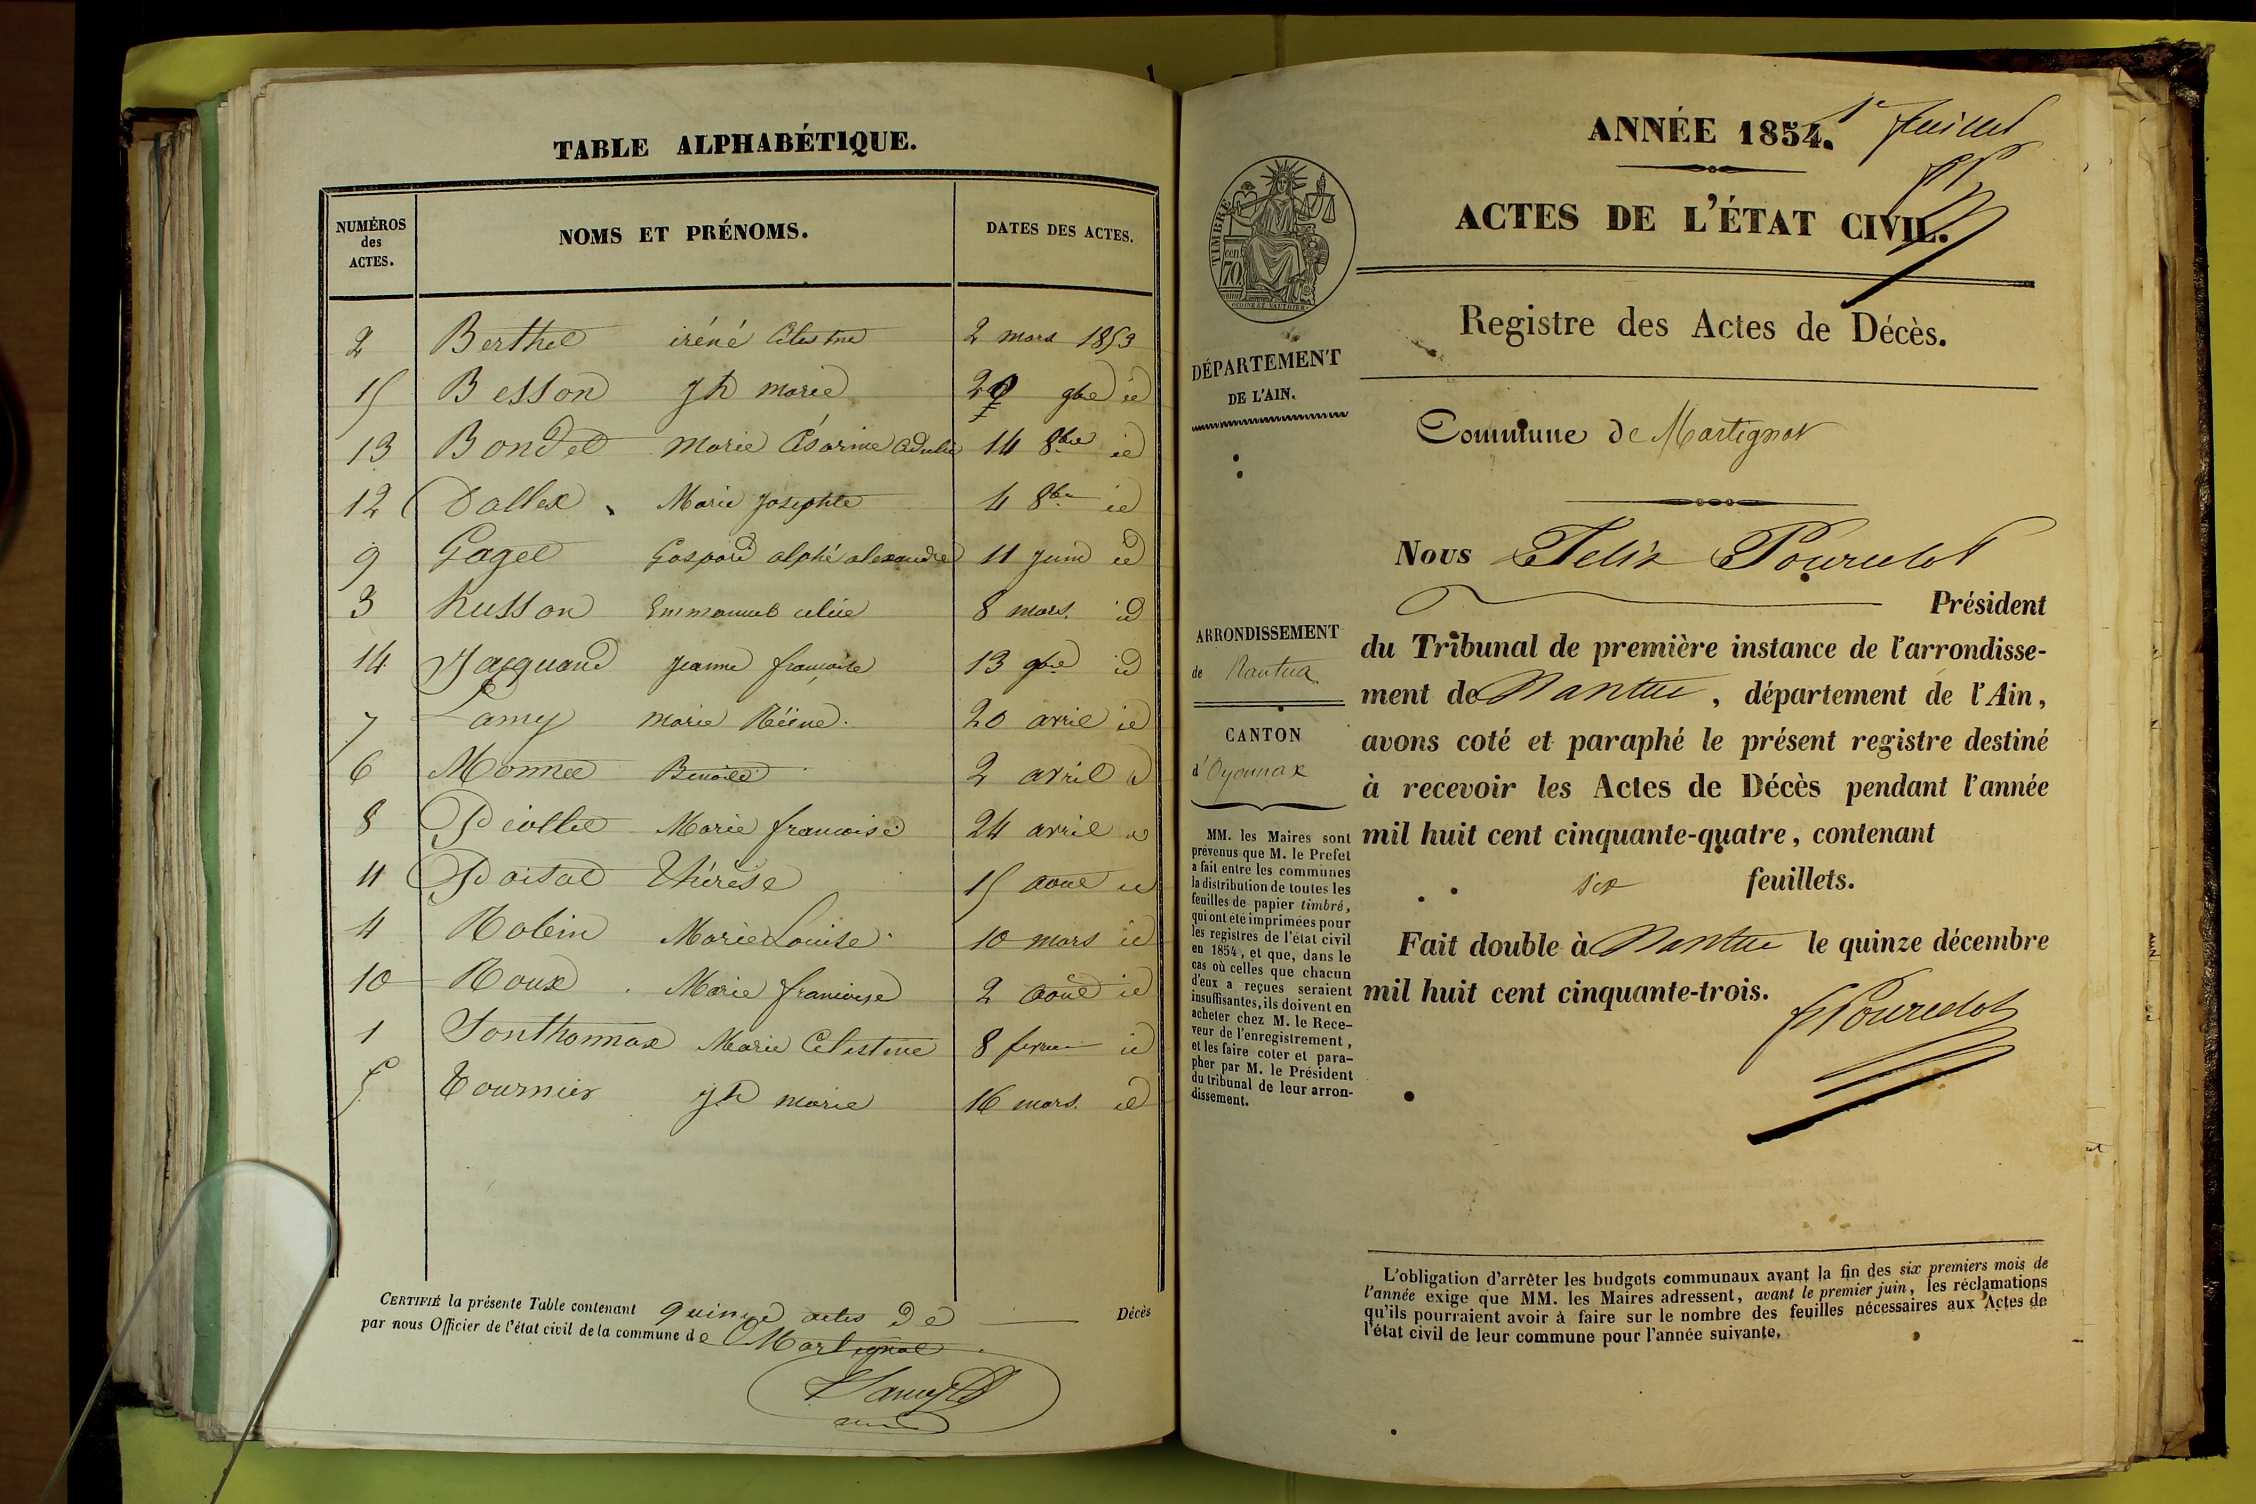 TABLE ALPHABÉTIQUE.
NUMÉROS des ACTES. NOMS ET PRÉNOMS. DATES DES ACTES.
2 Berthet iréné Celestine 2 mars 1853
15 Besson jh marie 9bre id
13 Bondet Marie Césarine 14 8bre id
12 Dallex Marie josephte 4 8bre id
9 Gaget Gaspard alphé alexandre 11 juin id
3 husson Emmanuel 8 mars id
14 Jacquand jeanne françoise 13 9bre id
7 Lamy marie Réine 20 avril id
6 Monnet Benoite 2 avril id
8 Piollet Marie francoise 24 avril id
11 Thérèse 15 aout id
4 Robin Marie Louise 10 mars id
10 Roux Marie francoise 2 août id
1 Sonthonnax Marie Celestine 8 id
5 Tournier jh marie 16 mars id
CERTIFIÉ la présente Table contenant quinze actes de Décès
par nous Officier de l'état civil de la commune de Martignat
ANNÉE 1854.
1e feuillet
TIMBRE
cen 70
ACTES DE L'ÉTAT CIVIL.
Registre des Actes de Décès.
DÉPARTEMENT
DE L'AIN.
Commune de Martignat
ARRONDISSEMENT
de Nantua
CANTON
d'Oyonnax
MM. les Maires sont
prévenus que M. le Prefet
a fait entre les communes
la distribution de toutes les
feuilles de papier timbré,
qui ont été imprimées pour
les registres de l'état civil
en 1854, et que, dans le
cas où celles que chacun
d'eux a reçues seraient
insuffisantes, ils doivent en
acheter chez M. le Rece-
veur de l'enregistrement,
et les faire coter et para-
pher par M. le Président
du tribunal de leur arron-
dissement.
Nous Felix Pourcelot
Président
du Tribunal de première instance de l'arrondisse-
ment de Nantua, département de l'Ain,
avons coté et paraphé le présent registre destiné
à recevoir les Actes de Décès pendant l'année
mil huit cent cinquante-quatre, contenant
six feuillets.
Fait double à Nantua le quinze décembre
mil huit cent cinquante-trois.
F Pourcelot
L'obligation d'arrêter les budgets communaux avant la fin des six premiers mois de
l'année exige que MM. les Maires adressent, avant le premier juin, les réclamations
qu'ils pourraient avoir à faire sur le nombre des feuilles nécessaires aux Actes de
l'état civil de leur commune pour l'année suivante.